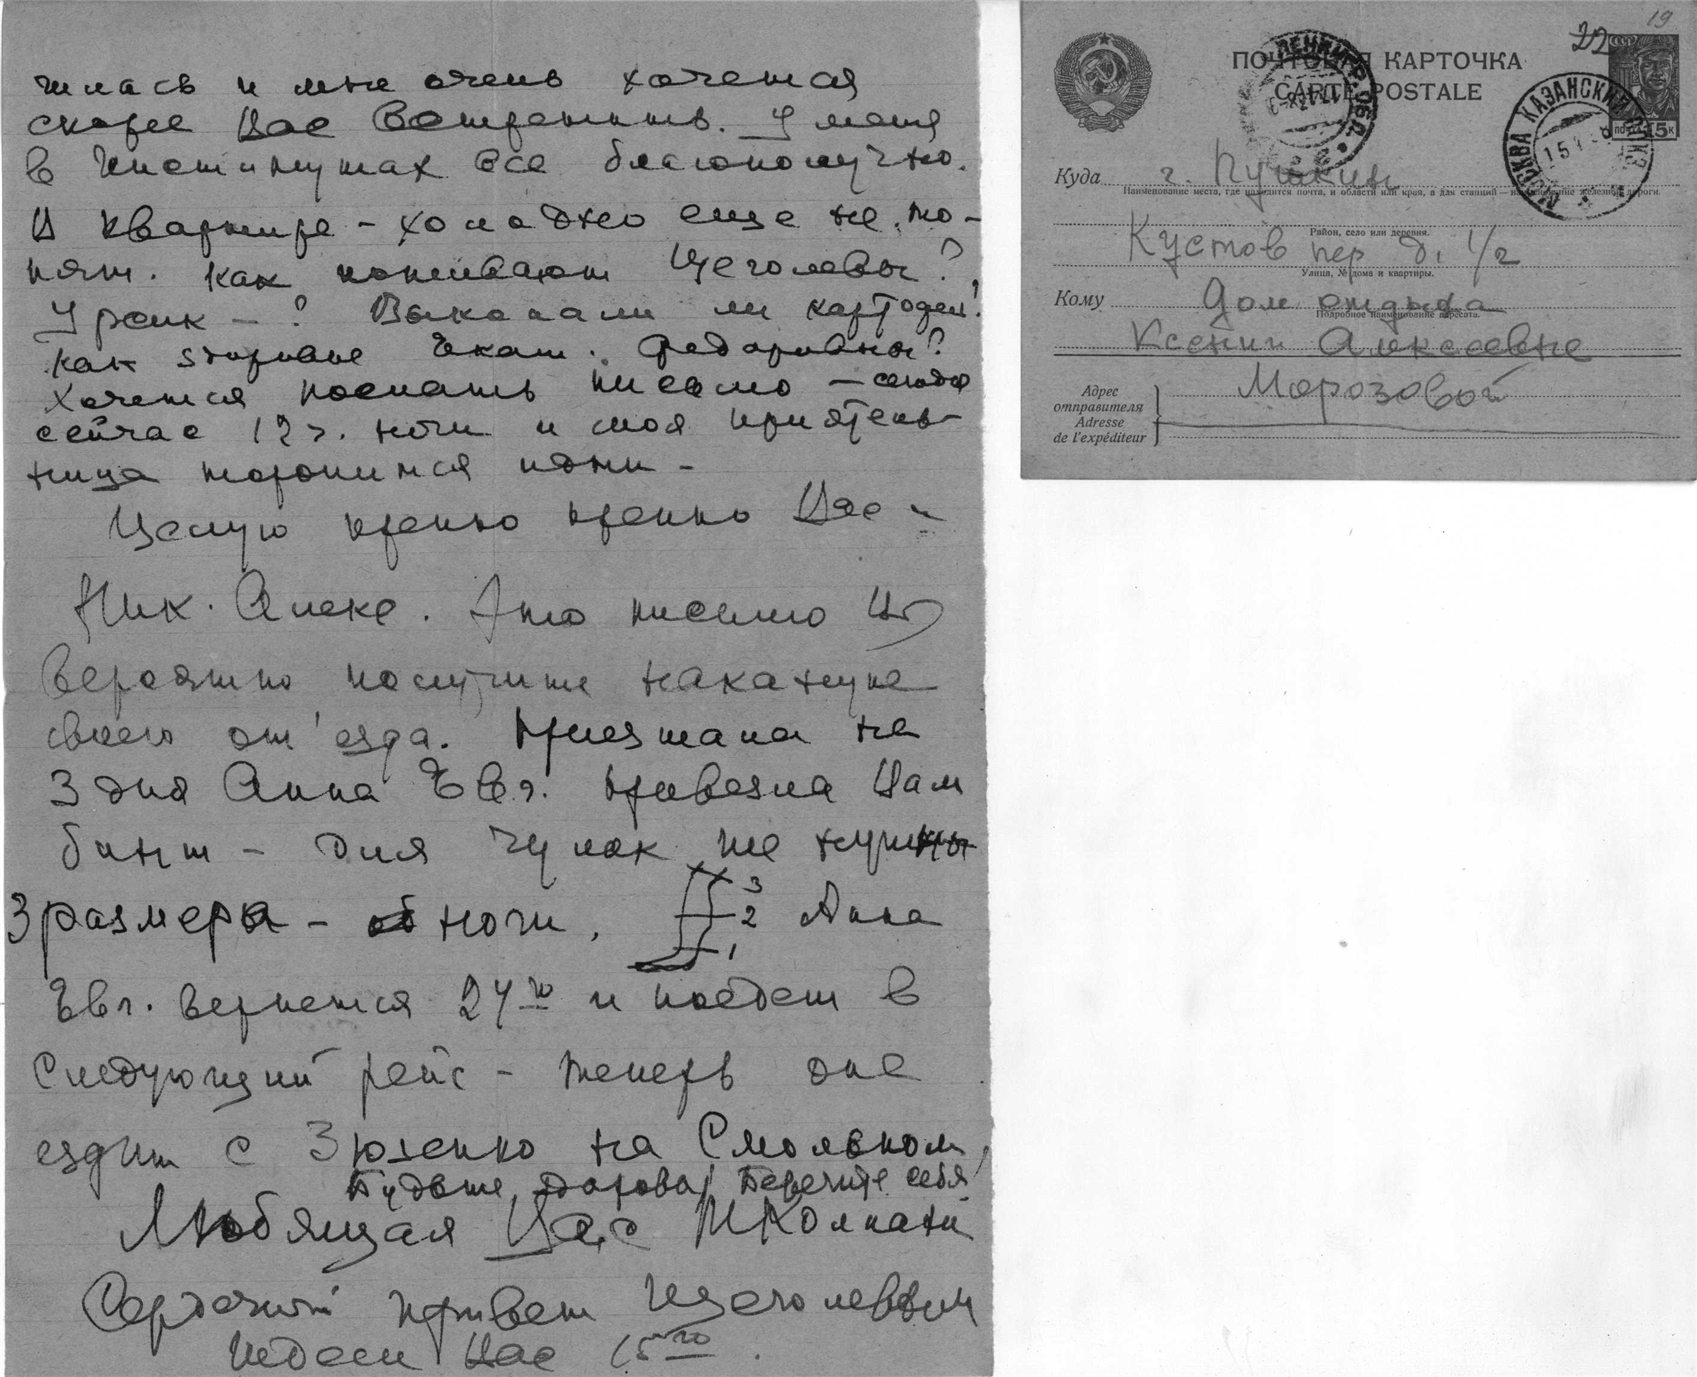 чилась и мне очень хочется
скорее Вас встретить. У меня
в Институтах все благополучно.
В квартире – холодно еще не то-
пят. Как поживают Щеголевы?
Урсик – ? Выкопали ли картофель?
Как здоровье Екат. Федоровны?
Хочется послать письмо –
сейчас 12 ч. ночи и моя приятель-
ница торопится идти –
Целую крепко крепко Вас и
Ник. Алекс. Это письмо Вы
вероятно получите накануне
своего от'езда. Приезжала на
3 дня Анна Евг. привезла Вам
бинт – для чулок же нужны
3 размера – ночи. 3
2 Анна
1
Евг. вернется 24го и поедет в
следующий рейс – теперь она
ездит с Зюзенко на Смольном,
Будьте здоровы, Берегите себя
Любящая Вас МКолпакчи
Сердечный привет Щеголевым
Ждем Вас 15го.
19
22
СССР
ПОЧТОВАЯ КАРТОЧКА
CARTE POSTALE
ЛЕНИНГР. ОБЛ.
МОСКВА КАЗАНСКИЙ
ПОЧТА 15 к
Куда г. Пушкин
Наименование места, где находится почта, и области или края, а для станций — наименование железной дороги.
Район, село или деревня.
Кустов пер д. 1/2
Улица, № дома и квартиры.
Кому Дом отдыха
Подробное наименование адресата.
Ксении Алексеевне
Морозовой
Адрес
отправителя
Adresse
de l'expéditeur